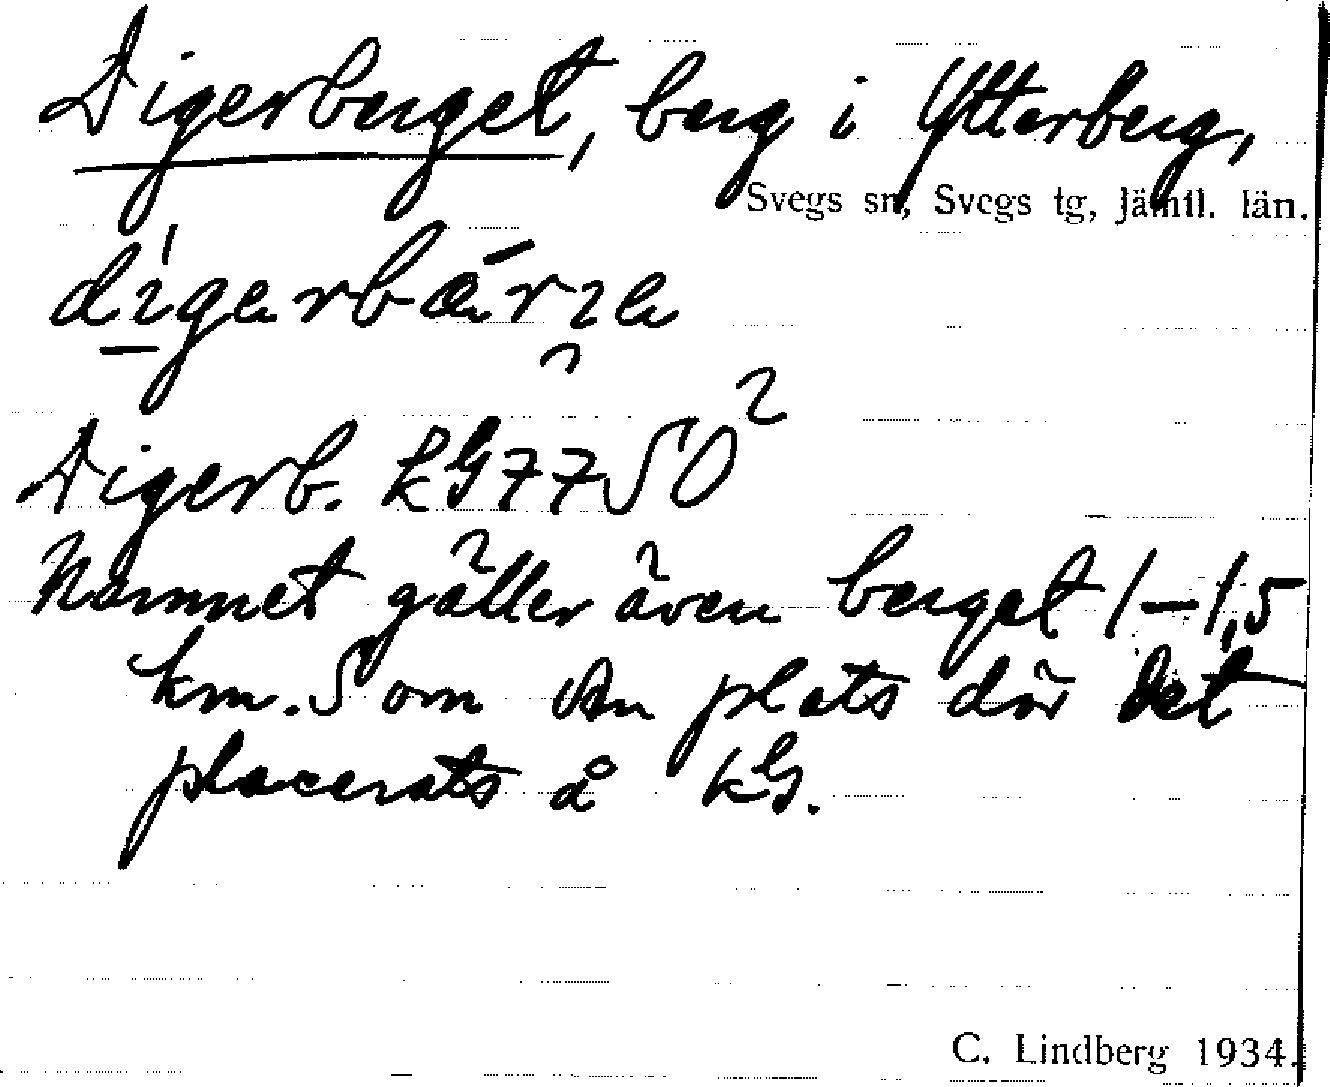 Digerberget, berg i Ytterberg,
Svegs sn, Svegs tg, Jämtl. län.
Digerb. kG77SO²
Namnet gäller även berget 1–1,5
km. S om den plats där det
placerats å kG.
C. Lindberg 1934.